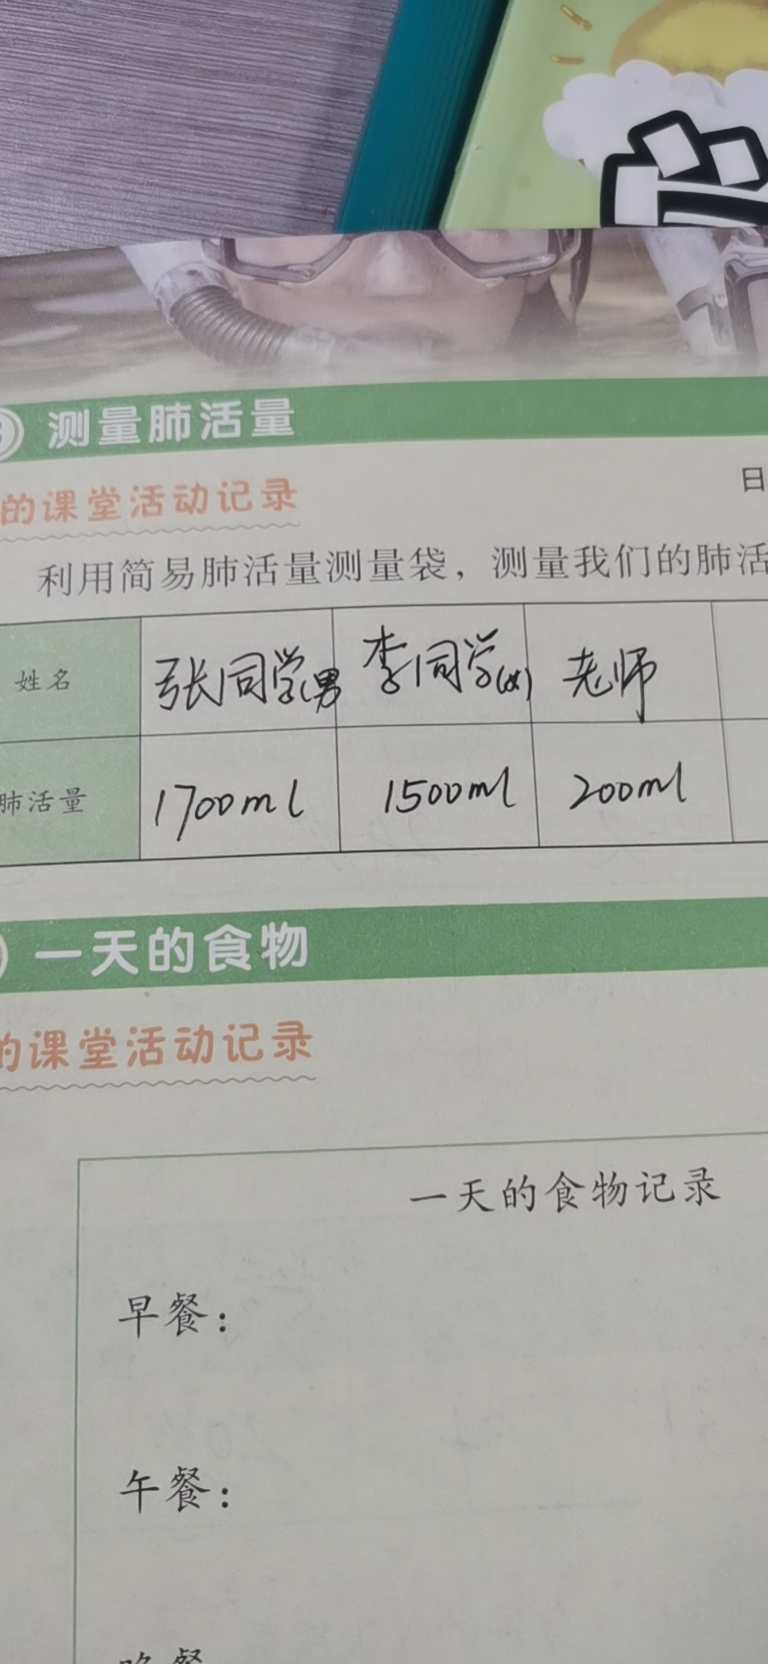 测量肺活量
的课堂活动记录
日
利用简易肺活量测量袋，测量我们的肺活
姓名 张同学(男 李同学(女) 老师
肺活量 1700ml 1500ml 200ml
一天的食物
的课堂活动记录
一天的食物记录
早餐：
午餐：